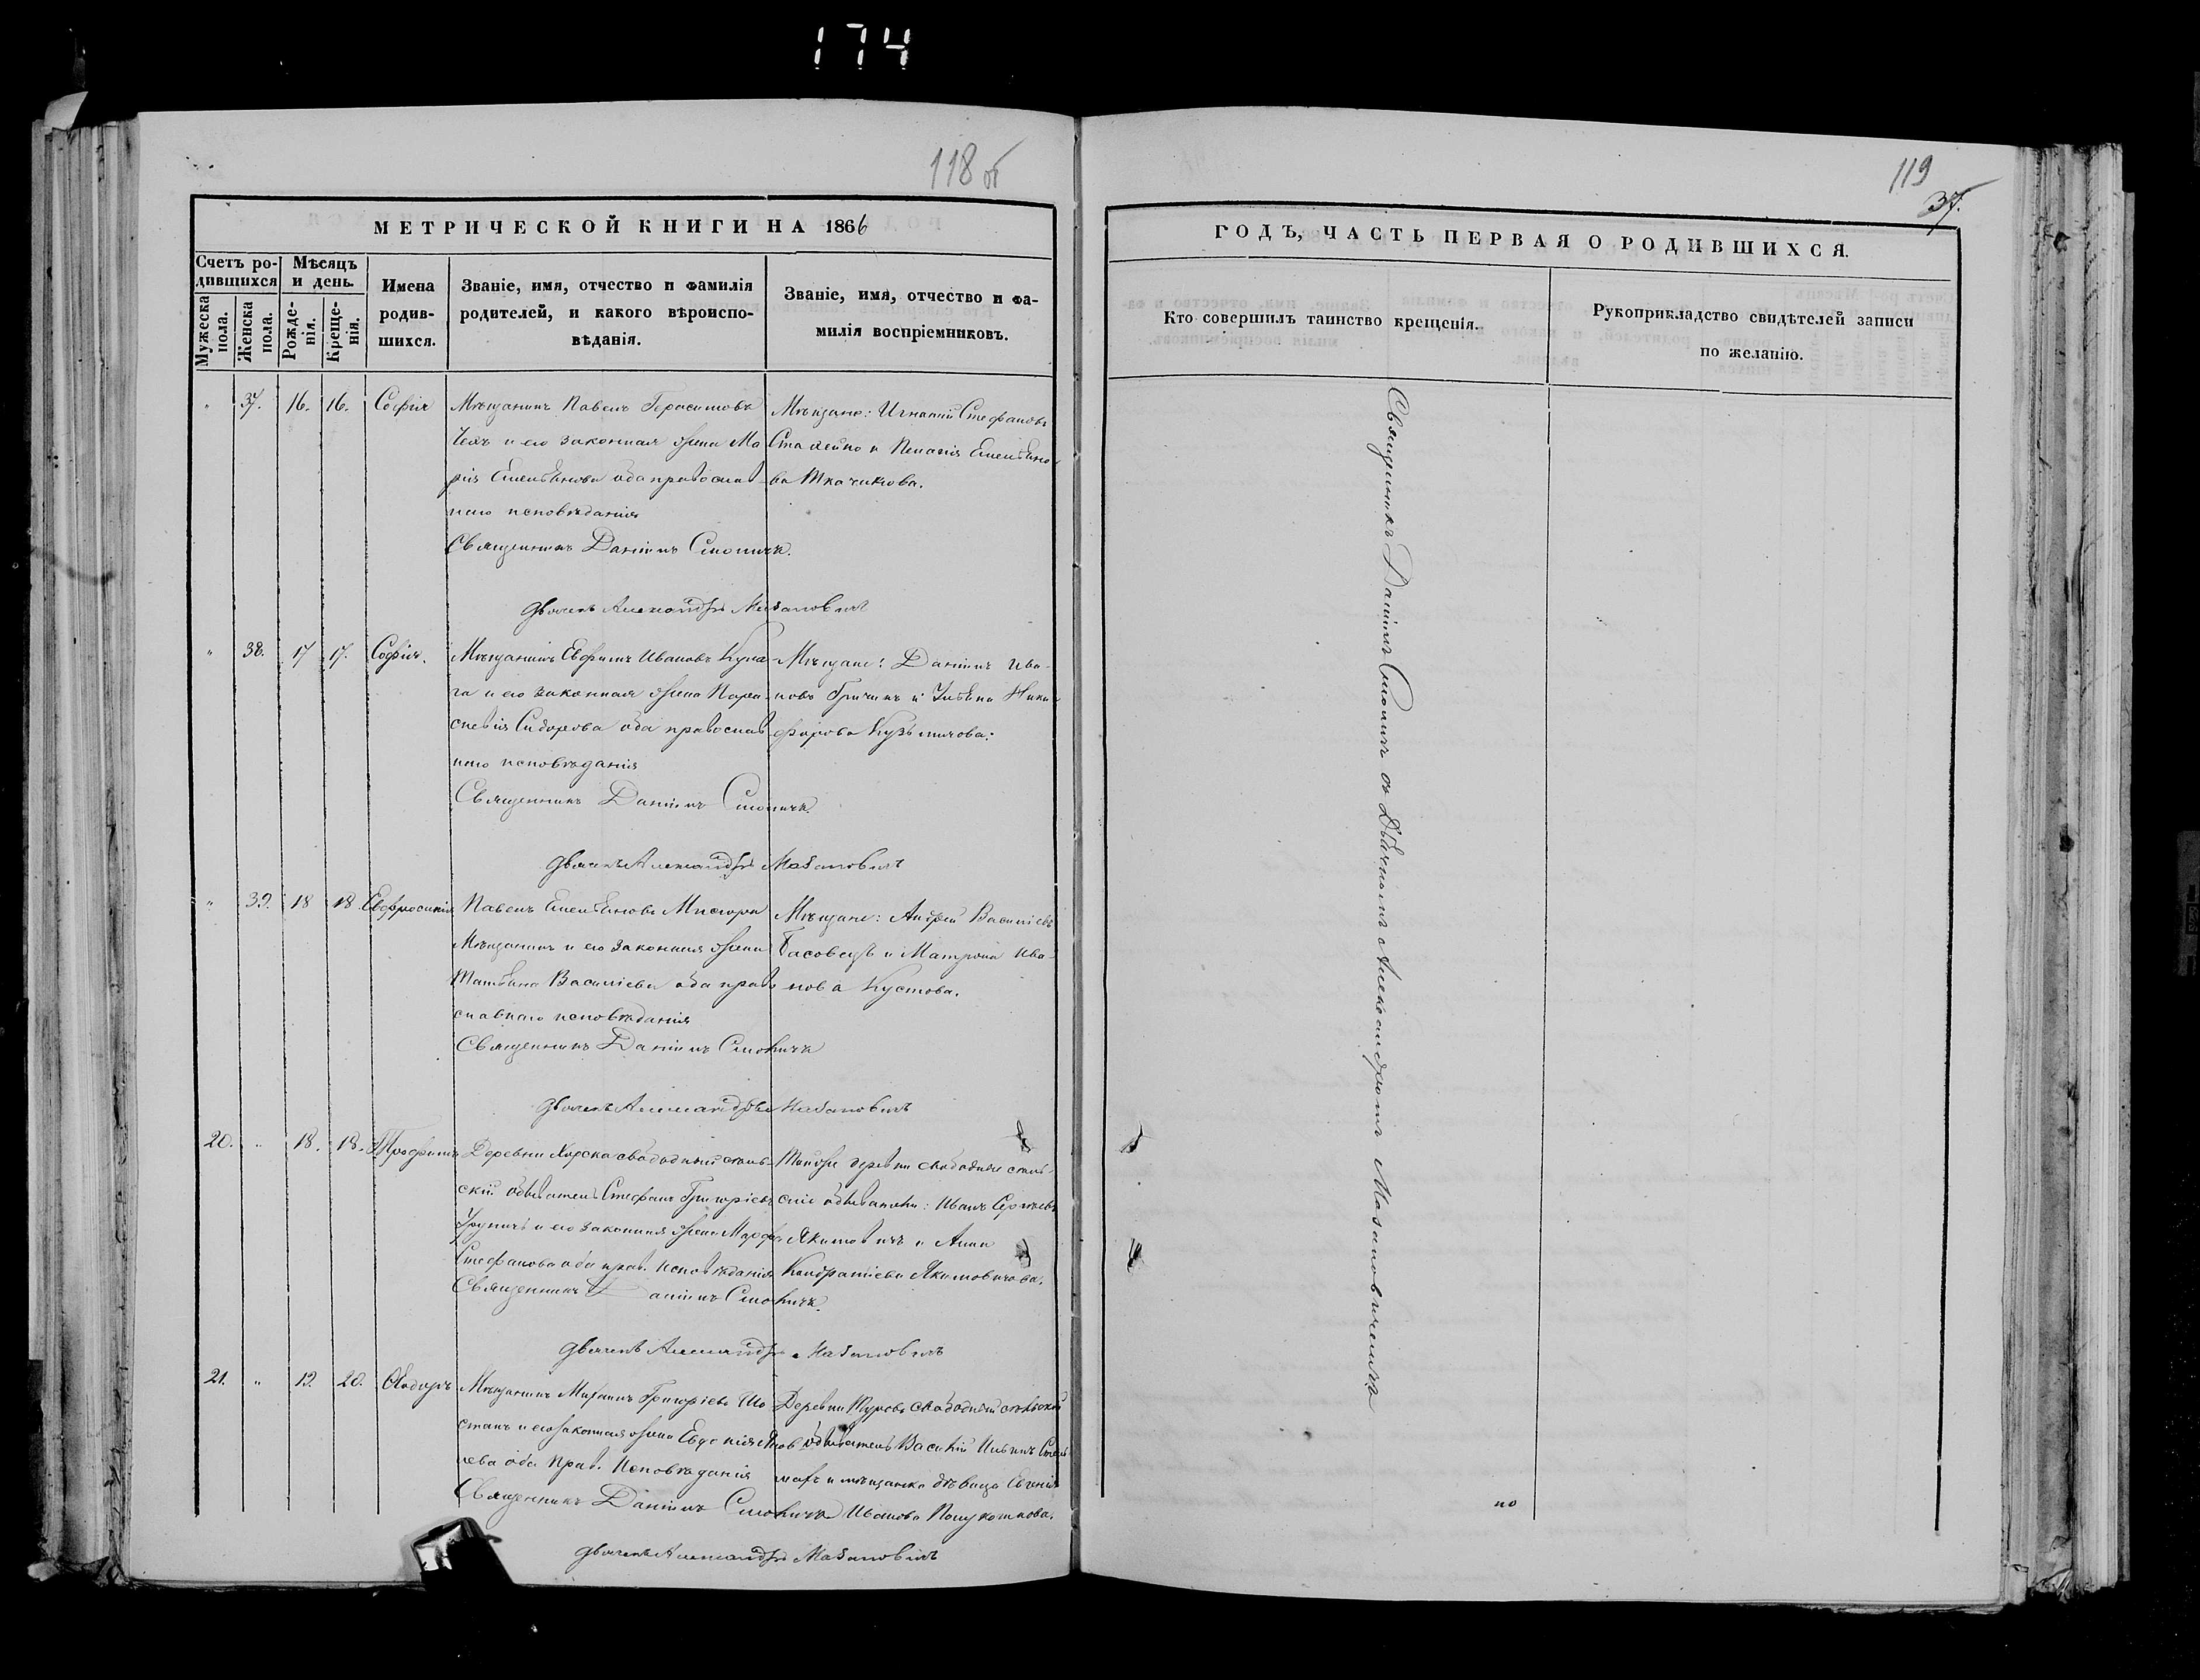 174
118 об
МЕТРИЧЕСКОЙ КНИГИ НА 1866
Счетъ ро-
дившихся
Мѣсяцъ
и день.
Мужеска
пола.
Женска
пола.
Рожде-
нія.
Креще-
нія.
Имена
родив-
шихся.
Званіе, имя, отчество и фамилія
родителей, и какого вѣроиспо-
вѣданія.
Званіе, имя, отчество и фа-
милія воспріемниковъ.
" 37. 16. 16. Софія
Мѣщанинъ Павелъ Герасимовъ
Чехъ и его законная жена Ма
рія Емельянова оба православ
наго исповѣданія
Священникъ Даніилъ Смоличъ.
Мѣщане: Игнатій Стефановъ
и Пелагія Емельяно
ва Ткачикова.
Дьячекъ Александръ Мазановичъ
" 38. 17 17. Софія.
Мѣщанинъ Евфимъ Ивановъ Кула
га и его законная жена Пара
скевія Сидорова оба православ
наго исповѣданія
Священникъ Даніилъ Смоличъ
Мѣщане: Даніилъ Ива-
новъ Гричикъ и Ульяна Ники
форова Кузьмичова:
Дьячекъ Александръ Мазановичъ
" 39. 18 18 Евфросинія
Павелъ Емельяновъ Мисюра
Мѣщанинъ и его законная жена
Татьяна Василіева оба право
славнаго исповѣданія
Священникъ Даніилъ Смоличъ
Мѣщане: Андрей Василіевъ
Басовецъ и Матрона Ива-
нова Кустова.
Дьячекъ Александръ Мазановичъ
20. " 18. 18. Трофимъ
Деревни Хорска свободный сель-
скій обыватель Стефанъ Григоріевъ
и его законная жена Марфа
Стефанова оба прав. исповѣданія
Священникъ Даніилъ Смоличъ.
Тойже деревни свободные сель-
скіе обыватели: Иванъ Сергѣевъ
Якимовичъ и Анна
Кондратіева Якимовичова.
Дьячекъ Александръ Мазановичъ
21. " 19. 20. Ѳеодоръ
Мѣщанинъ Михаилъ Григоріевъ Шо
стакъ и его законная жена Евдокія Яков
лева оба прав. исповѣданія
Священникъ Даніилъ Смоличъ
Деревни Турова свободный сельскій
обыватель Василій Ильинъ
и мѣщанка дѣвица Евгенія
Иванова
Дьячекъ Александръ Мазановичъ
119
37.
ГОДЪ, ЧАСТЬ ПЕРВАЯ О РОДИВШИХСЯ.
Кто совершилъ таинство крещенія.
Рукоприкладство свидѣтелей записи
по желанію.
Священникъ Даніилъ Смоличъ съ Дьячкомъ Александромъ Мазановичемъ
по